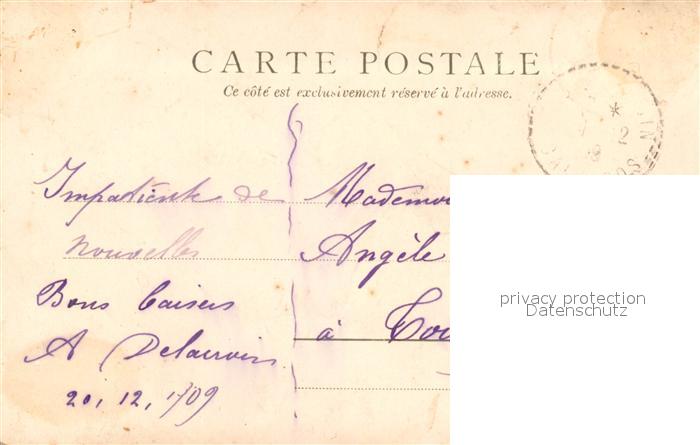 CARTE POSTALE
Ce côté est exclusivement réservé à l'adresse.
Impatiente de
nouvelles
Bons baisers
A
20, 12, 1909
Mademoi
Angèle
à
privacy protection
Datenschutz